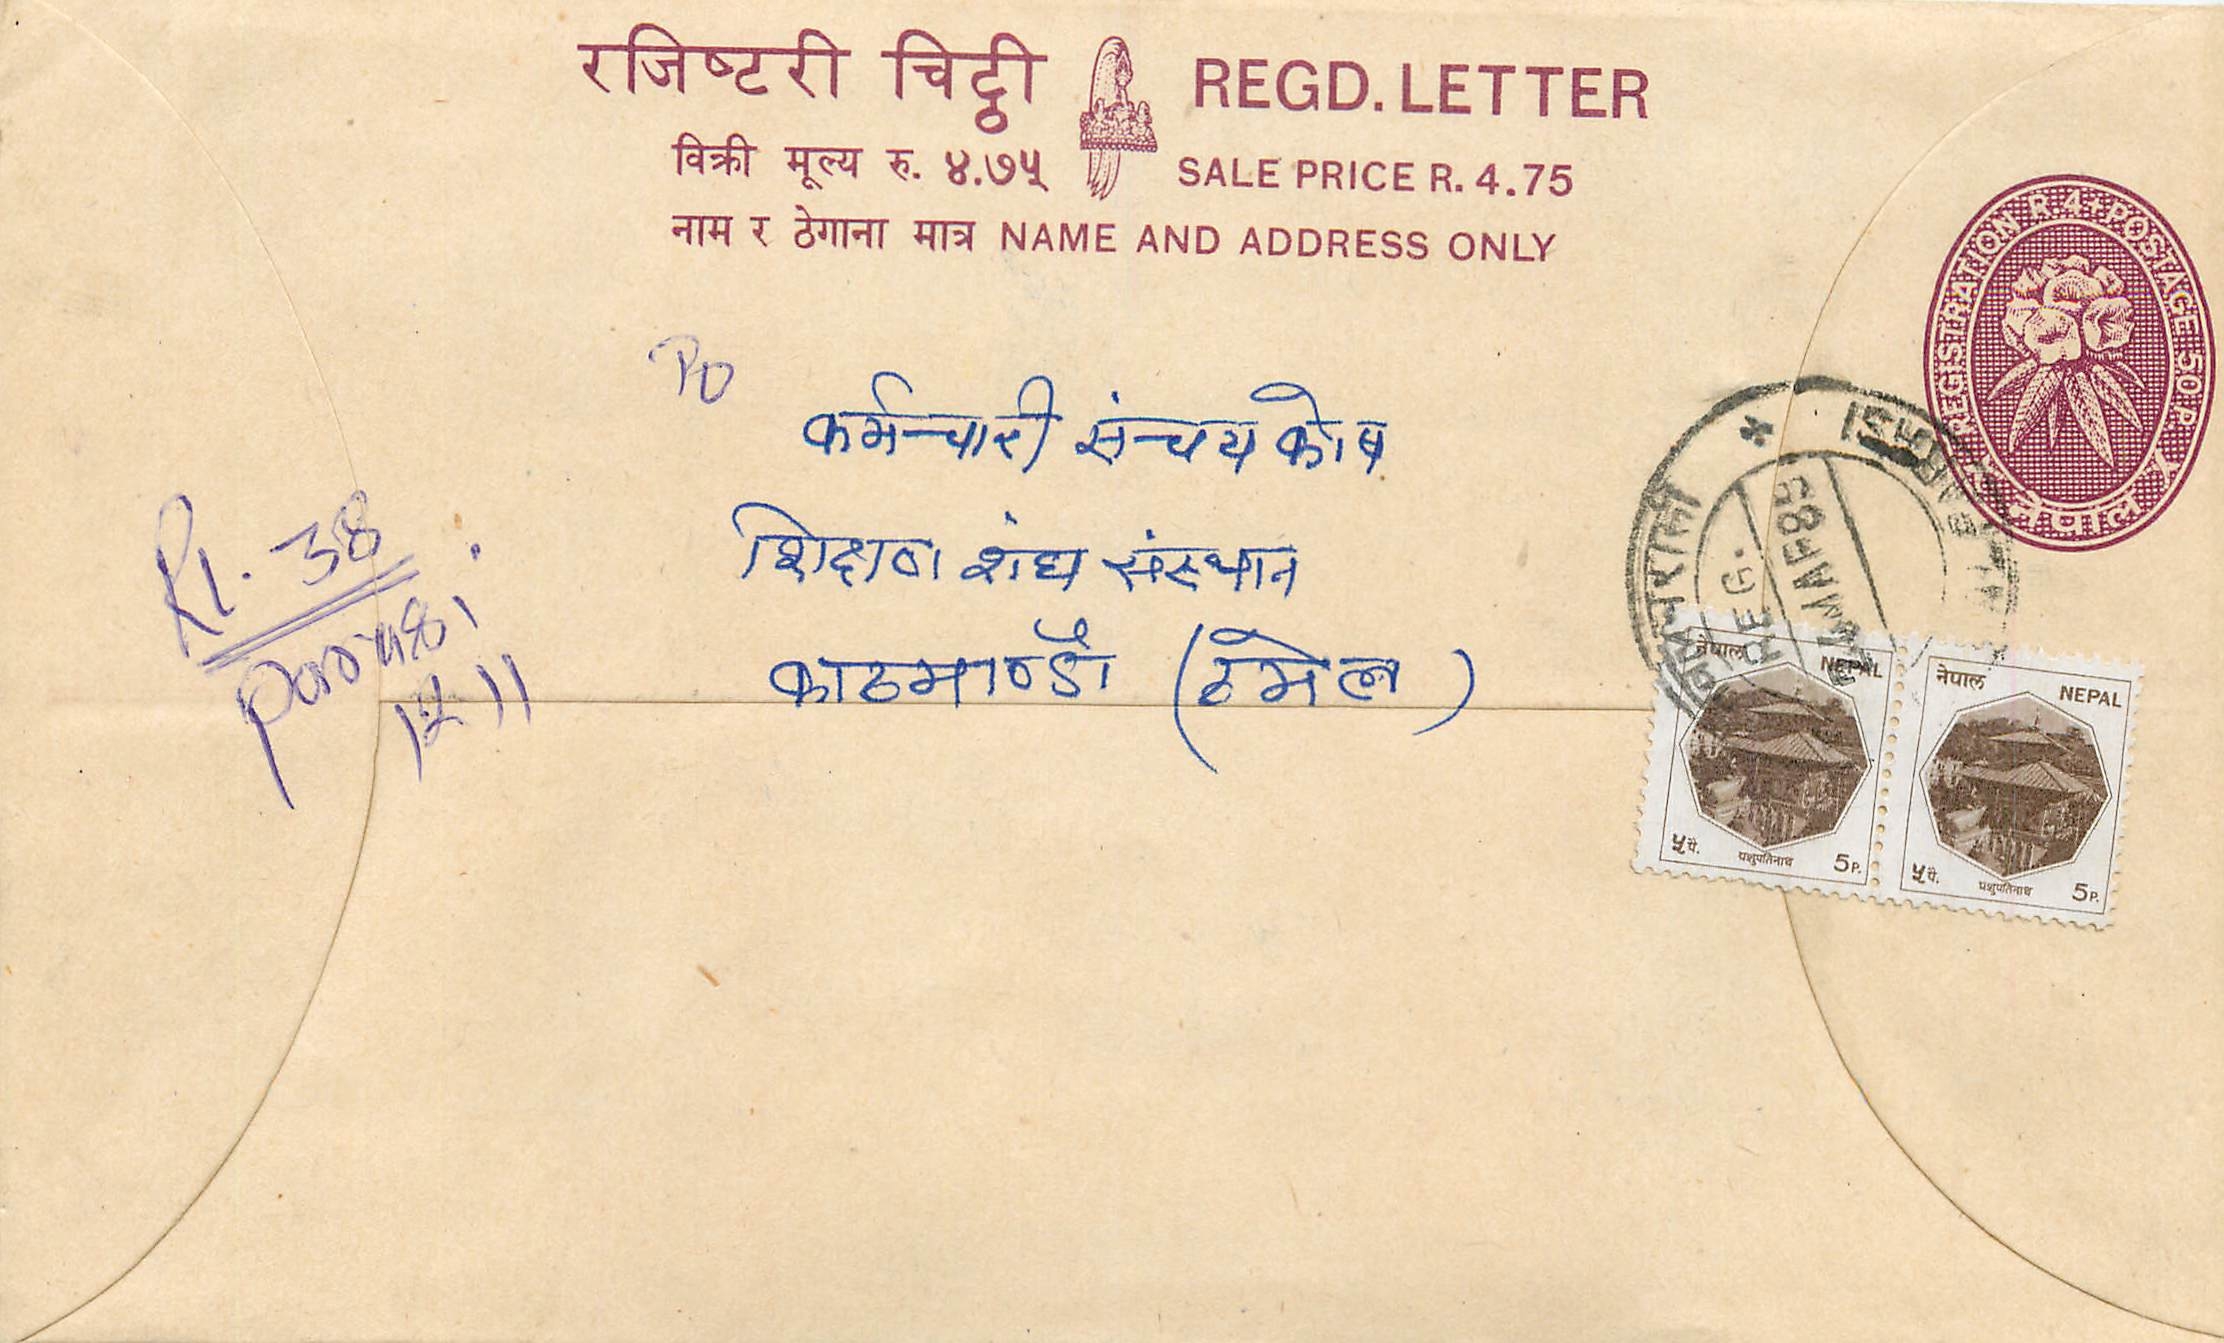 रजिष्टरी चिट्ठी REGD. LETTER
विक्री मूल्य रु. ४.७५ SALE PRICE R. 4.75
नाम र ठेगाना मात्र NAME AND ADDRESS ONLY
REGISTRATION R.4+POSTAGE 50 P.
नेपाल
PO
कर्मचारी संचय कोष
शिक्षण शंघ संस्थान
काठमाण्डौ (ठमेल)
RL. 38
REG.
नेपाल NEPAL
५ पै. पशुपतिनाथ 5 P.
नेपाल NEPAL
५ पै. पशुपतिनाथ 5 P.